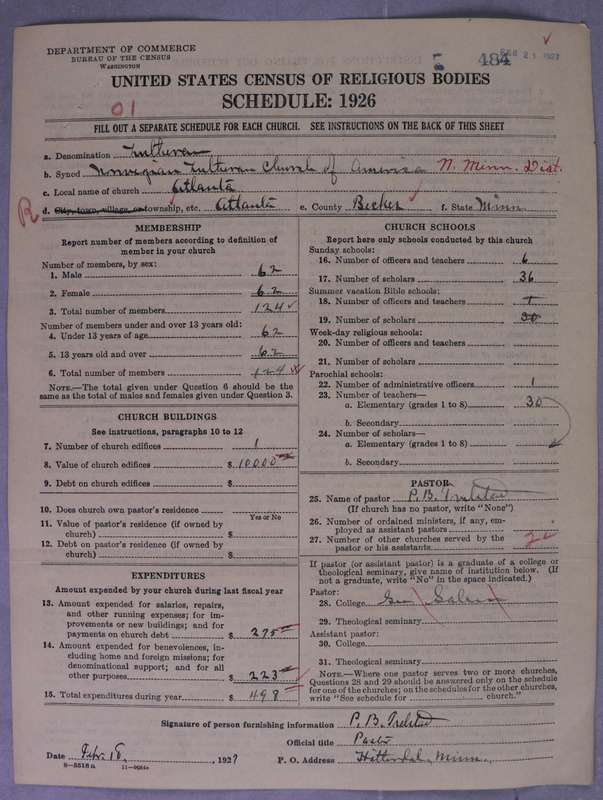 DEPARTMENT OF COMMERCE
BUREAU OF THE CENSUS
WASHINGTON
484 FEB 21 1927
UNITED STATES CENSUS OF RELIGIOUS BODIES
SCHEDULE: 1926
01
FILL OUT A SEPARATE SCHEDULE FOR EACH CHURCH. SEE INSTRUCTIONS ON THE BACK OF THIS SHEET
a. Denomination Lutheran
b. Synod Norwegian Lutheran Church of America N. Minn. Dist.
c. Local name of church Atlanta
R d. City, town, village, or township, etc. Atlanta e. County Becker f. State Minn.
MEMBERSHIP
Report number of members according to definition of member in your church
Number of members, by sex:
1. Male 62
2. Female 62
3. Total number of members 124
Number of members under and over 13 years old:
4. Under 13 years of age 62
5. 13 years old and over 62
6. Total number of members 124
NOTE.—The total given under Question 6 should be the
same as the total of males and females given under Question 3.
CHURCH BUILDINGS
See instructions, paragraphs 10 to 12
7. Number of church edifices 1
8. Value of church edifices $ 10000
9. Debt on church edifices $
10. Does church own pastor's residence
Yes or No
11. Value of pastor's residence (if owned by
church) $
12. Debt on pastor's residence (if owned by
church) $
EXPENDITURES
Amount expended by your church during last fiscal year
13. Amount expended for salaries, repairs,
and other running expenses; for im-
provements or new buildings; and for
payments on church debt $ 275
14. Amount expended for benevolences, in-
cluding home and foreign missions; for
denominational support; and for all
other purposes $ 223
15. Total expenditures during year $ 498
CHURCH SCHOOLS
Report here only schools conducted by this church
Sunday schools:
16. Number of officers and teachers 6
17. Number of scholars 36
Summer vacation Bible schools:
18. Number of officers and teachers 1
19. Number of scholars 30
Week-day religious schools:
20. Number of officers and teachers
21. Number of scholars
Parochial schools:
22. Number of administrative officers 1
23. Number of teachers—
a. Elementary (grades 1 to 8) 30
b. Secondary
24. Number of scholars—
a. Elementary (grades 1 to 8)
b. Secondary
PASTOR
25. Name of pastor P. B. Trelstad
(If church has no pastor, write "None")
26. Number of ordained ministers, if any, em-
ployed as assistant pastors
27. Number of other churches served by the
pastor or his assistants 2
If pastor (or assistant pastor) is a graduate of a college or
theological seminary, give name of institution below. (If
not a graduate, write "No" in the space indicated.)
Pastor:
28. College See Salem
29. Theological seminary
Assistant pastor:
30. College
31. Theological seminary
NOTE.—Where one pastor serves two or more churches,
Questions 28 and 29 should be answered only on the schedule
for one of the churches; on the schedules for the other churches,
write "See schedule for church."
Signature of person furnishing information P. B. Trelstad
Official title Pastor
Date Febr. 18, 1927 P. O. Address Hitterdal, Minn.
8—5518 a 11—9034